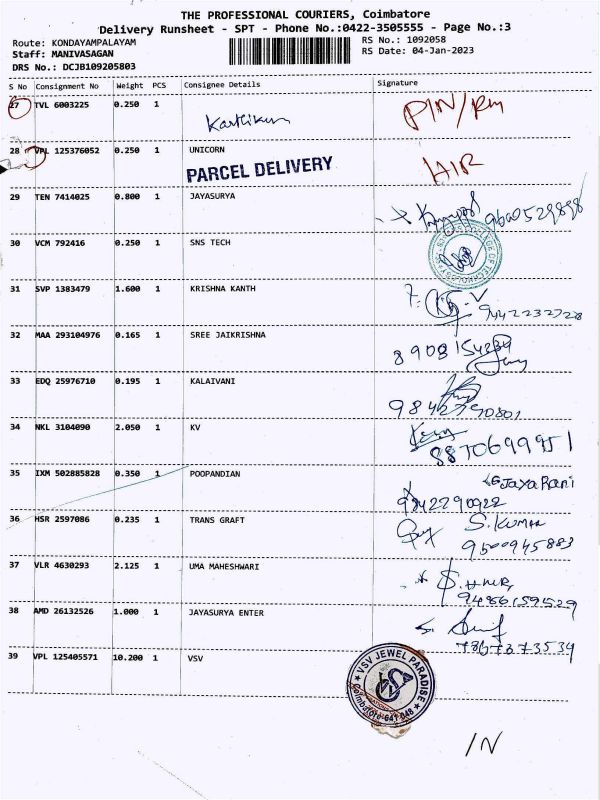 THE PROFESSIONAL COURIERS, Coimbatore
Delivery Runsheet - SPT - Phone No.:0422-3505555 - Page No.:3
Route: KONDAYAMPALAYAM
RS No.: 1092058
Staff: MANIVASAGAN
RS Date: 04-Jan-2023
DRS No.: DCJB109205803
S No Consignment No Weight PCS Consignee Details Signature
27 TVL 6003225 0.250 1 PIN/RM
Karthikun
28 VPL 125376052 0.250 1 UNICORN
PARCEL DELIVERY
29 TEN 7414025 0.800 1 JAYASURYA
30 VCM 792416 0.250 1 SNS TECH
31 SVP 1383479 1.600 1 KRISHNA KANTH
9442232728
32 MAA 293104976 0.165 1 SREE JAIKRISHNA
33 EDQ 25976710 0.195 1 KALAIVANI
9842790801
34 NKL 3104090 2.050 1 KV
8870699951
35 IXM 502885828 0.350 1 POOPANDIAN
Jaya Rani
9842290922
36 HSR 2597086 0.235 1 TRANS GRAFT
S. KUMAR
9500945883
37 VLR 4630293 2.125 1 UMA MAHESHWARI
9486159529
38 AMD 26132526 1.000 1 JAYASURYA ENTER
7867373539
39 VPL 125405571 10.200 1 VSV
VSV JEWEL PARADISE
Coimbatore-641 048
IN